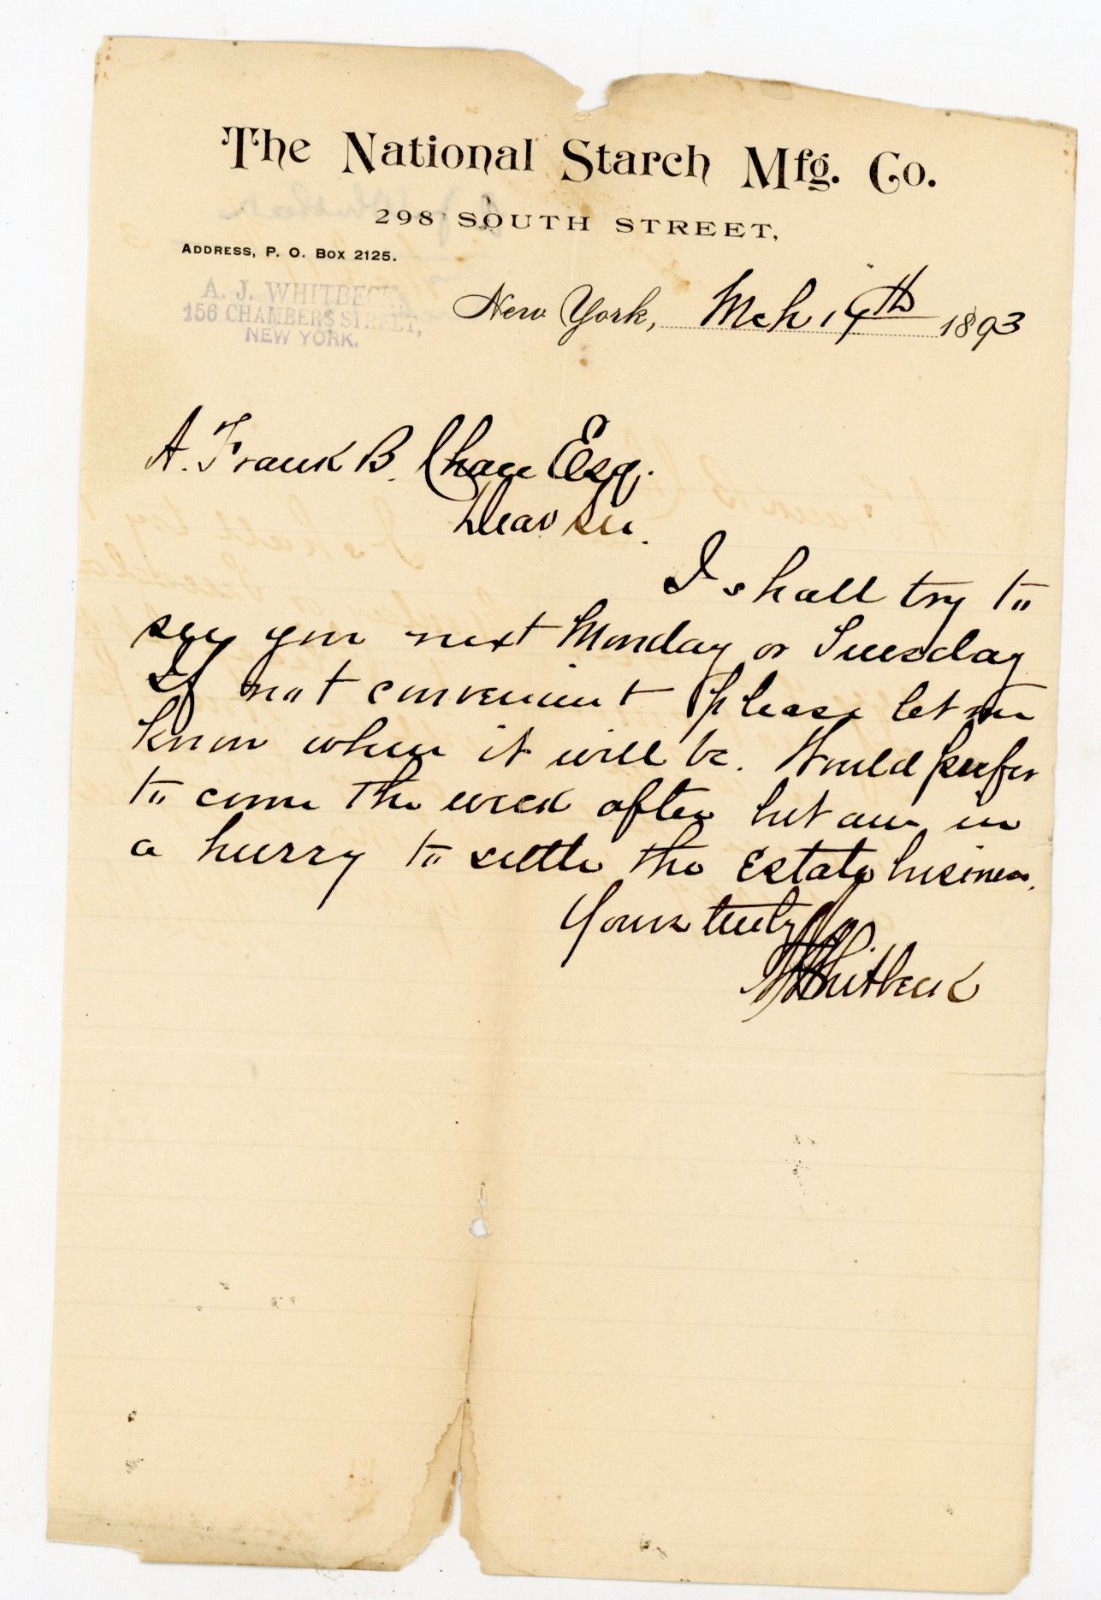 The National Starch Mfg. Co.
298 SOUTH STREET,
ADDRESS, P. O. BOX 2125.
A. J. WHITBECK,
156 CHAMBERS STREET,
NEW YORK.
New York, Mch 19th 1893
A. Frank B. Chace Esq.
Dear Sir.
I shall try to
see you next Monday or Tuesday
If not convenient please let me
know when it will be. Would prefer
to come the week after but am in
a hurry to settle the Estate business.
Yours truly
A J Whitbeck